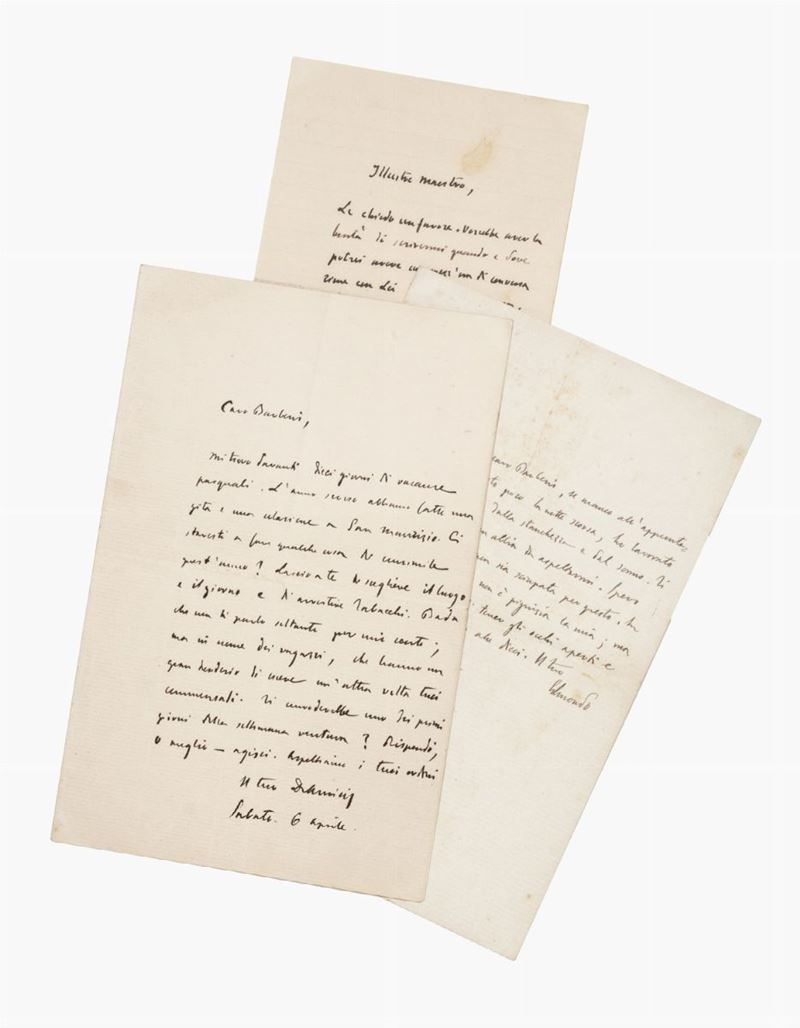 Illustre maestro,
Le chiedo un favore. Vorrebbe aver la
bontà di scrivermi quando e dove
potrei avere un mezz'ora di conversa
zione con Lei
Caro Barberis,
mi trovo davanti dieci giorni di vacanze
pasquali. L'anno scorso abbiamo fatto una
gita e una colazione a San Maurizio. Ci
staresti a fare qualche cosa di consimile
quest'anno? Lascio a te di scegliere il luogo
e il giorno e d'avvertire Tabacchi. Bada
che non ti parlo soltanto per mio conto;
ma in nome dei ragazzi, che hanno un
gran desiderio di essere un'altra volta tuoi
commensali. Ti converrebbe uno dei primi
giorni della settimana ventura? Rispondi,
o meglio — agisci. Aspettiamo i tuoi ordini
Il tuo DeAmicis
Sabato. 6 aprile.
caro Barberis, se manco all'appunta-
poco la notte scorsa, ho lavorato
dalla stanchezza e dal sonno. Ti
di aspettarmi. Spero
non sia scappata per questo. ho
non è pigrizia la mia; non
tener gli occhi aperti e
alle dieci. Il tuo
Edmondo